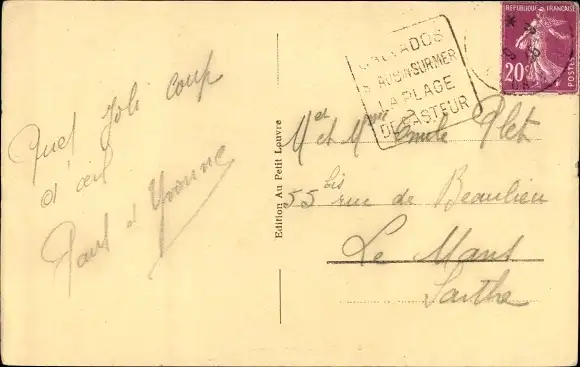 Quel joli coup
d'œil
Paul et Yvonne
Edition Au Petit Louvre
CALVADOS
ST AUBIN SUR MER
LA PLAGE
DE PASTEUR
REPUBLIQUE FRANÇAISE
20c
POSTES
Mr et Mme Emile Plet
55 bis rue de Beaulieu
Le Mans
Sarthe